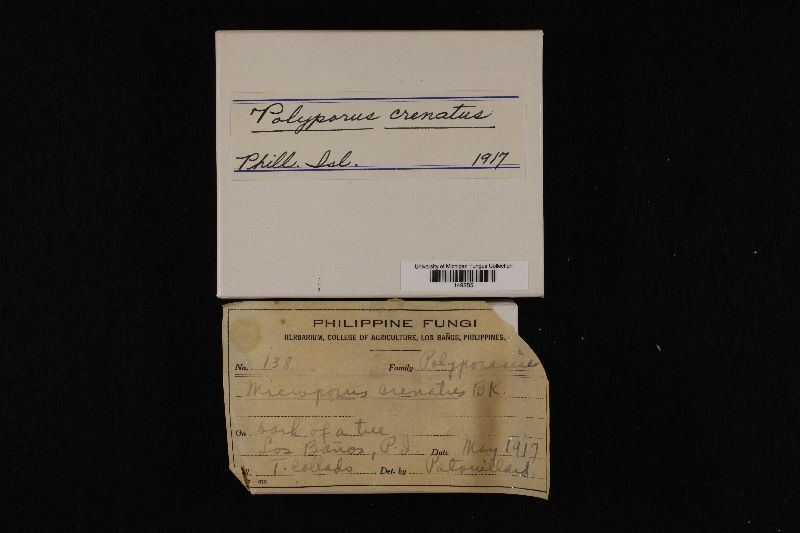 Polyporus crenatus
Phill. Isl. 1917
University of Michigan Fungus Collection
PHILIPPINE FUNGI
HERBARIUM, COLLEGE OF AGRICULTURE, LOS BAÑOS, PHILIPPINES.
No. 138 Family Polyporaceae
Microporus crenatus BK
On bark of a tree
Los Baños, P. I. Date May 1917
T. Collado Det. by Patouillard.